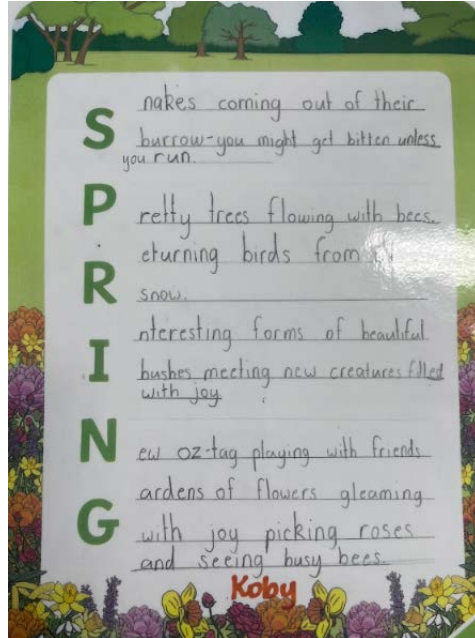 S nakes coming out of their
burrow-you might get bitten unless
you run.
P retty trees flowing with bees.
R eturning birds from
snow.
I nteresting forms of beautiful
bushes meeting new creatures filled
with joy
N ew oz-tag playing with friends
G ardens of flowers gleaming
with joy picking roses
and seeing busy bees.
Koby